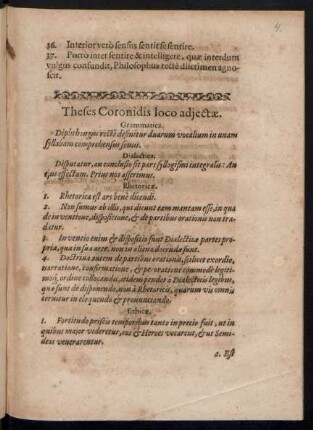 4.
36. Interior verò sensus sentit se sentire.
37. Porrò inter sentire & intelligere, quæ interdum
vulgus confundit, Philosophus rectè discrimen agno-
scit.
Theses Coronidis loco adjectæ.
Grammatica.
Diphthongus rectè definitur duarum vocalium in unam
syllabam comprehensus sonus.
Dialecticæ.
Disputatur, an conclusio sit pars syllogismi integralis: An
ejus effectum. Prius nos asserimus.
Rhetoricæ.
1. Rhetorica est ars benè dicendi.
2. Non sumus ab illis, qui dicunt eam mantam esse, in qua
de inventione, dispositione, & de partibus orationis non tra-
ditur.
3. Inventio enim & dispositio sunt Dialecticæ partes pro-
priæ, quæ in sua arte, non in aliena docendæ sunt.
4. Doctrina autem de partibus orationis, scilicet exordio,
narratione, confirmatione, & peroratione commodè legiti-
moq́; ordine collocandis, itidem pendet à Dialecticis legibus,
quæ sunt de disponendo, non à Rhetoricis, quarum vis omnis
cernitur in eloquendo & pronunciando.
Ethicæ.
1. Fortitudo priscis temporibus tanto in precio fuit, ut in
quibus major videretur, eos & Heroes vocarent, & ut Semi-
deos venerarentur.
2. Est